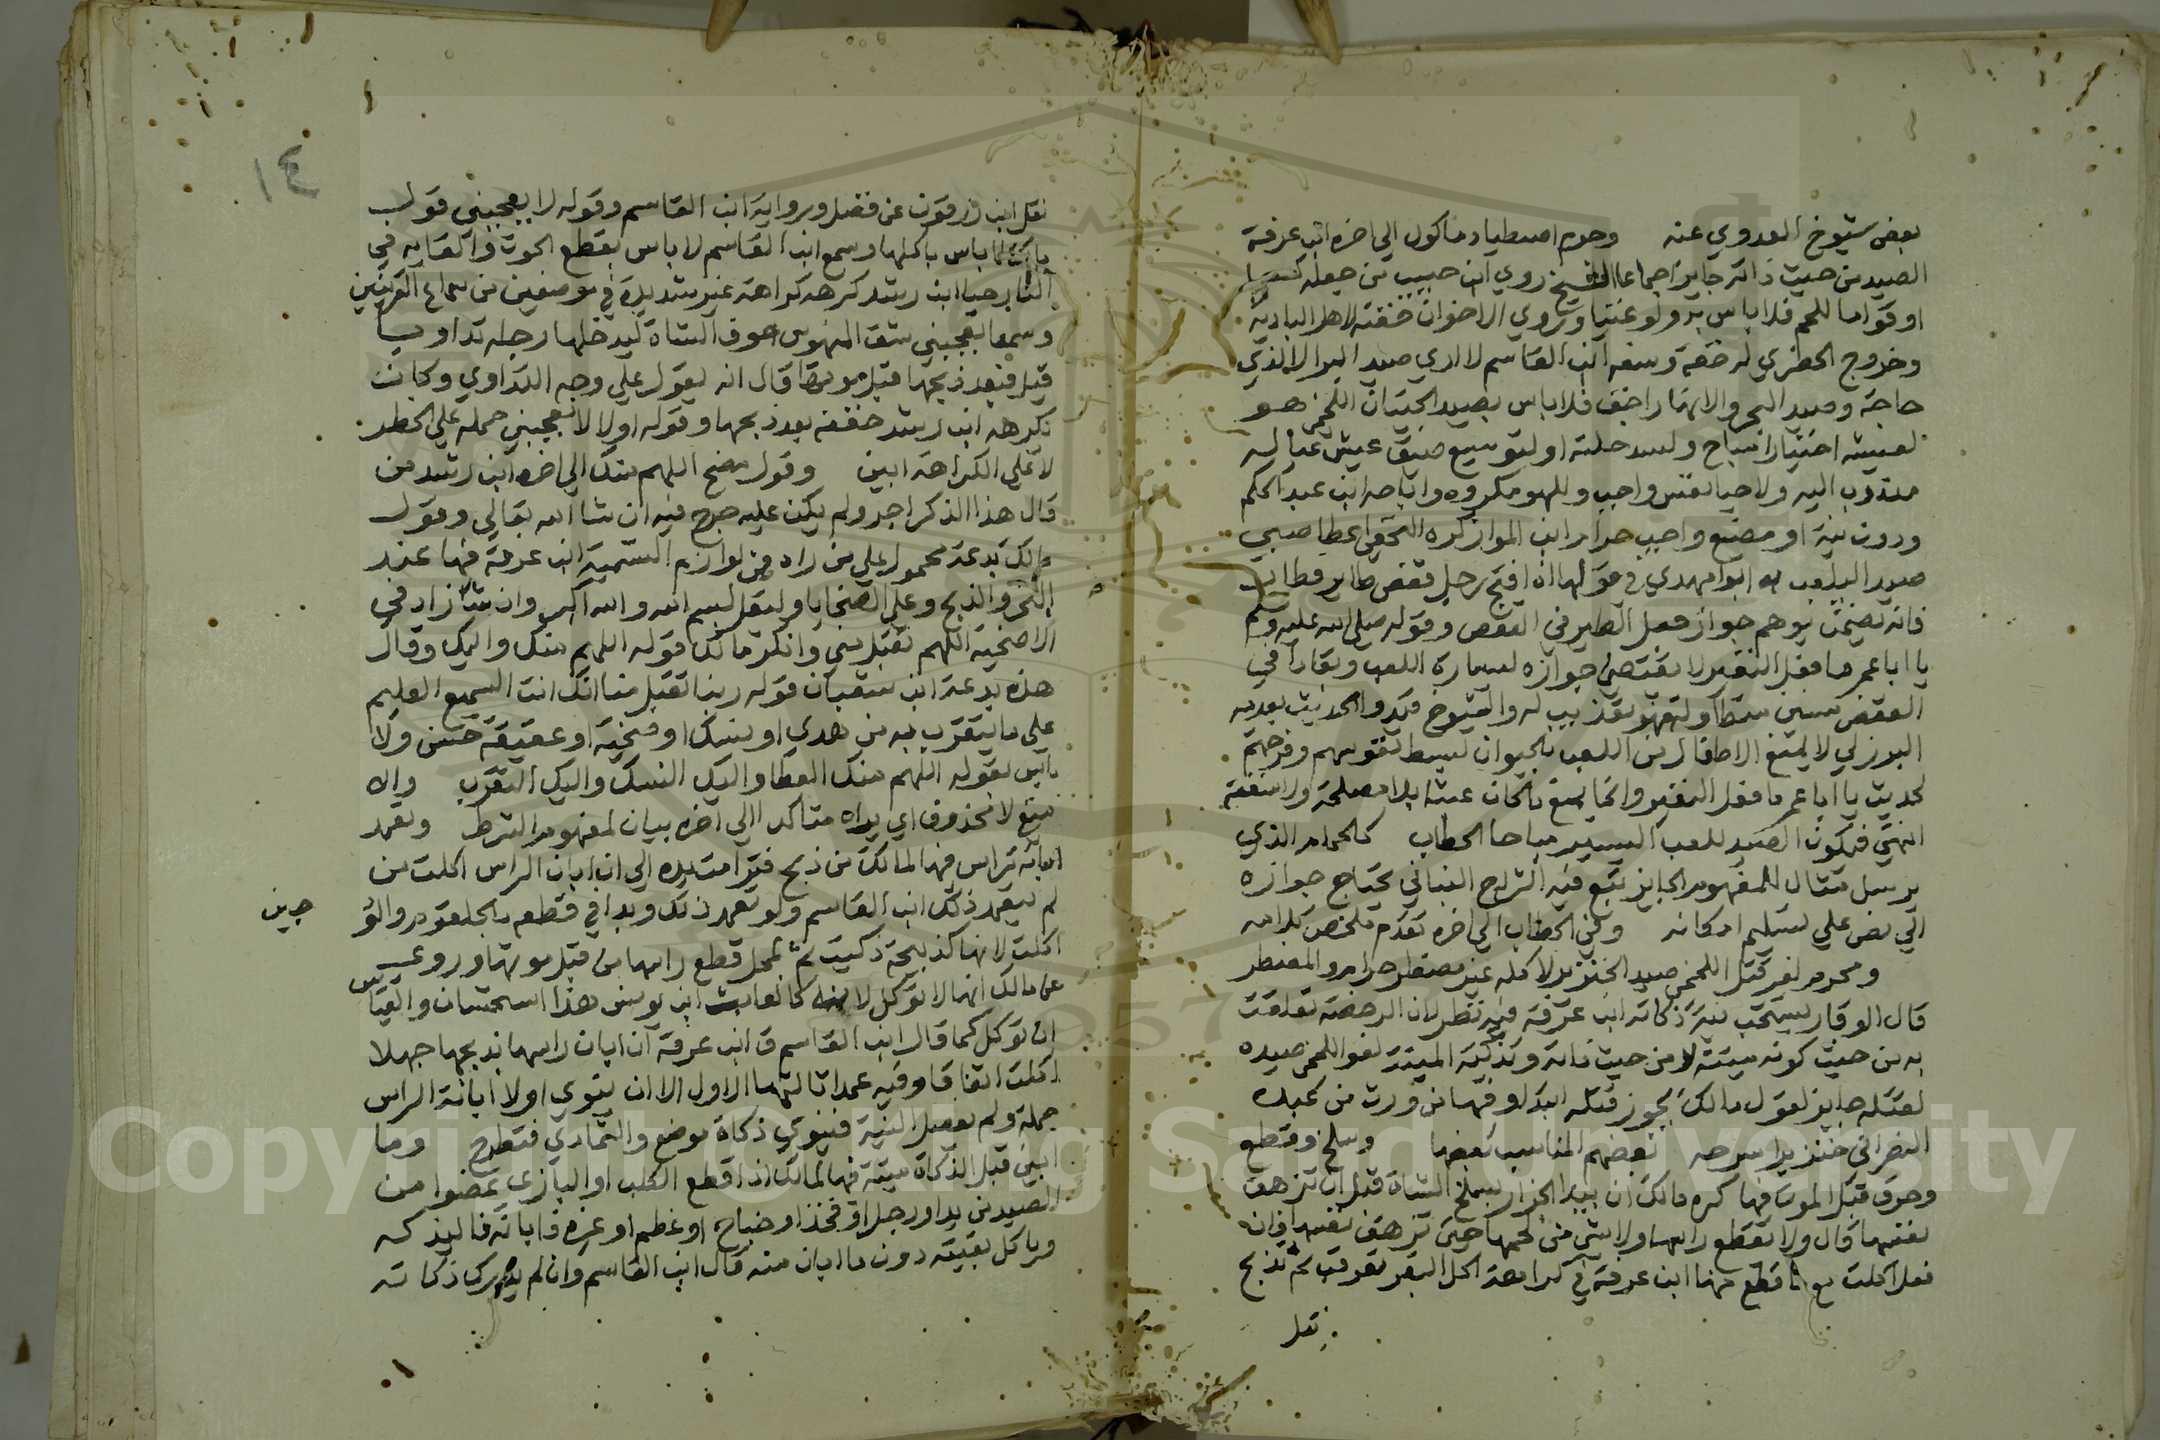 بعض شيوخ العدوي عنه وحرم اصطياد ماكول الي اخره ابن عرفة
الصيد من حيث ذاته جايز اجماعا الشيخ روي ابن حبيب من جعله كسبا
او قوام للحم فلا باس به ولو غنيا وروي الاخوان خفته لاهل البادية
وخروج الحضري له خفة وسفه ابن القاسم لا اري صيد البر الا لذي
حاجة وصيد البحر والانهار اخف فلا باس بصيد الحيتان اللخمي هو
لعيشه اختيارا مباح ولسد خلته او لتوسيع ضيق عيش عياله
مندوب اليه ولاحيا نفس واجب وللهو مكروه واباحه ابن عبد الحكم
ودون نية او مضيع واجب حرام ابن المواز كره اعطا صبي
صيد اليلعب به ابو مهدي في قولها ان افتح رجل قفص طاير فطار
فانه يضمن يوهم جواز جعل الطير في القفص وقوله صلي الله عليه وسلم
يا ابا عمير ما فعل النغير لا يقتضي جوازه ليسارة اللعب وبقاء في
القفص سنين فهو تعذيب له والحديث بعدمه
البرزلي لا يمنع الاطفال من اللعب بالحيوان لبسط نفوسهم وفرحهم
لحديث يا ابا عمير ما فعل النغير وانما يمنع ما كان عبثا بلا مصلحة ولا منفعة
انتهي فيكون الصيد للعب اليسير مباحا الحطاب كالحرام الذي
يرسل مثال للمفهوم الجايز تبع فيه الشراح البناني يحتاج جوازه
الي نص علي تسليم امكانه وكن الحطاب الي اخره تقدم ملخص كلامه
ومحرم لغير قتل اللخمي صيد الخنزير لاكله غير مضطر حرام والمضطر
قال الوقار يستحب نية ذكاته ابن عرفة فيه نظر لان الرخصة تعلقت
به من حيث كونه ميتة لا من حيث ذاته وتذكية الميتة لغو اللخمي صيده
لقتله جايز لقول مالك يجوز قتله ابتدا وفيها من ورث من عبده
النصراني خنزيرا سرحه بعضهم المناسب بعضها وسلخ وقطع
وحرق قبل الموت فيها كره مالك ان يبدا الجزار بسلخ الشاة قبل ان تزهق
نفسها قال ولا تقطع راسها ولا شي من لحمها حتي تزهق نفسها فان
فعل اكلت مع ما قطع منها ابن عرفة في كراهة اكل البقر تعرقب ثم تذبح
نقل
١٤
نقل ابن زرقون عن فضل ورواية ابن القاسم وقوله لا يعجبني قول
مالك لا باس باكلها وسمع ابن القاسم لا باس بقطع الحوت والقايه في
النار حيا ابن رشد كرهه كراهة غير شديدة في موضعين من سماع القرينين
وسمعا يعجبني شق المنهوس جوف الشاة ليدخلها رجله تداويا
قيل فبعد ذبحها قبل موتها قال انه ليقول علي وجه التداوي وكانت
تكرهه ابن رشد خففه بعد ذبحها وقوله اولا لا يعجبني حمله علي الحظر
لا علي الكراهة ابين وقول مضح اللهم منك الي اخره ابن رشد من
قال هذا الذكر اجر ولم يكن عليه حرج فيه ان شا الله تعالي وقول
مالك بدعة محمول علي من راه من لوازم التسمية ابن عرفة فيها عند
النحر والذبح وعلي الضحايا وليقل بسم الله والله اكبر وان شا زاد في
الاضحية اللهم تقبل مني وانكر مالك قوله اللهم منك واليك وقال
هذه بدعة ابن شعبان قوله ربنا تقبل منا انك انت السميع العليم
علي ما يتقرب به من هدي او نسك او ضحية او عقيقة حسن ولا
باس بقوله اللهم منك العطا واليك النسك واليك التقرب والا
منع لا نحذوف اي يراه متاكدا الي اخره بيان لمفهوم الشرط وتعمد
ابانة راس فيها لمالك من ذبح فترامت يده الي ان ابان الراس اكلت من
لم يتعمد ذلك ابن القاسم ولو تعمد ذلك وبدا في قطعه بالحلقوم والو
جين
اكلت لانها كذبيحة ذكيت ثم عجل قطع راسها من قبل موتها وروي
عن مالك انها لا توكل لانه كالعابث ابن يونس هذا استحسان والقياس
ان توكل كما قال ابن القاسم ق ابن عرفة ان ابان راسها بذبحها جهلا
اكلت اتفاقا وفيه عمدا ثالثها الاول الا ان ينوي اولا ابانة الراس
جملة ولم تفصل النية فينوي ذكاة موضع والتمادي فتطرح وما
ابين قبل الذكاة ميتة فيها لمالك اذا قطع الكلب او البازي عضوا من
الصيد من يد او رجل او فخذ او جناح او خطم او غيره فابانه فاليذكه
وياكل بقيته دون ما ابان منه قال ابن القاسم وان لم يدرك ذكاته